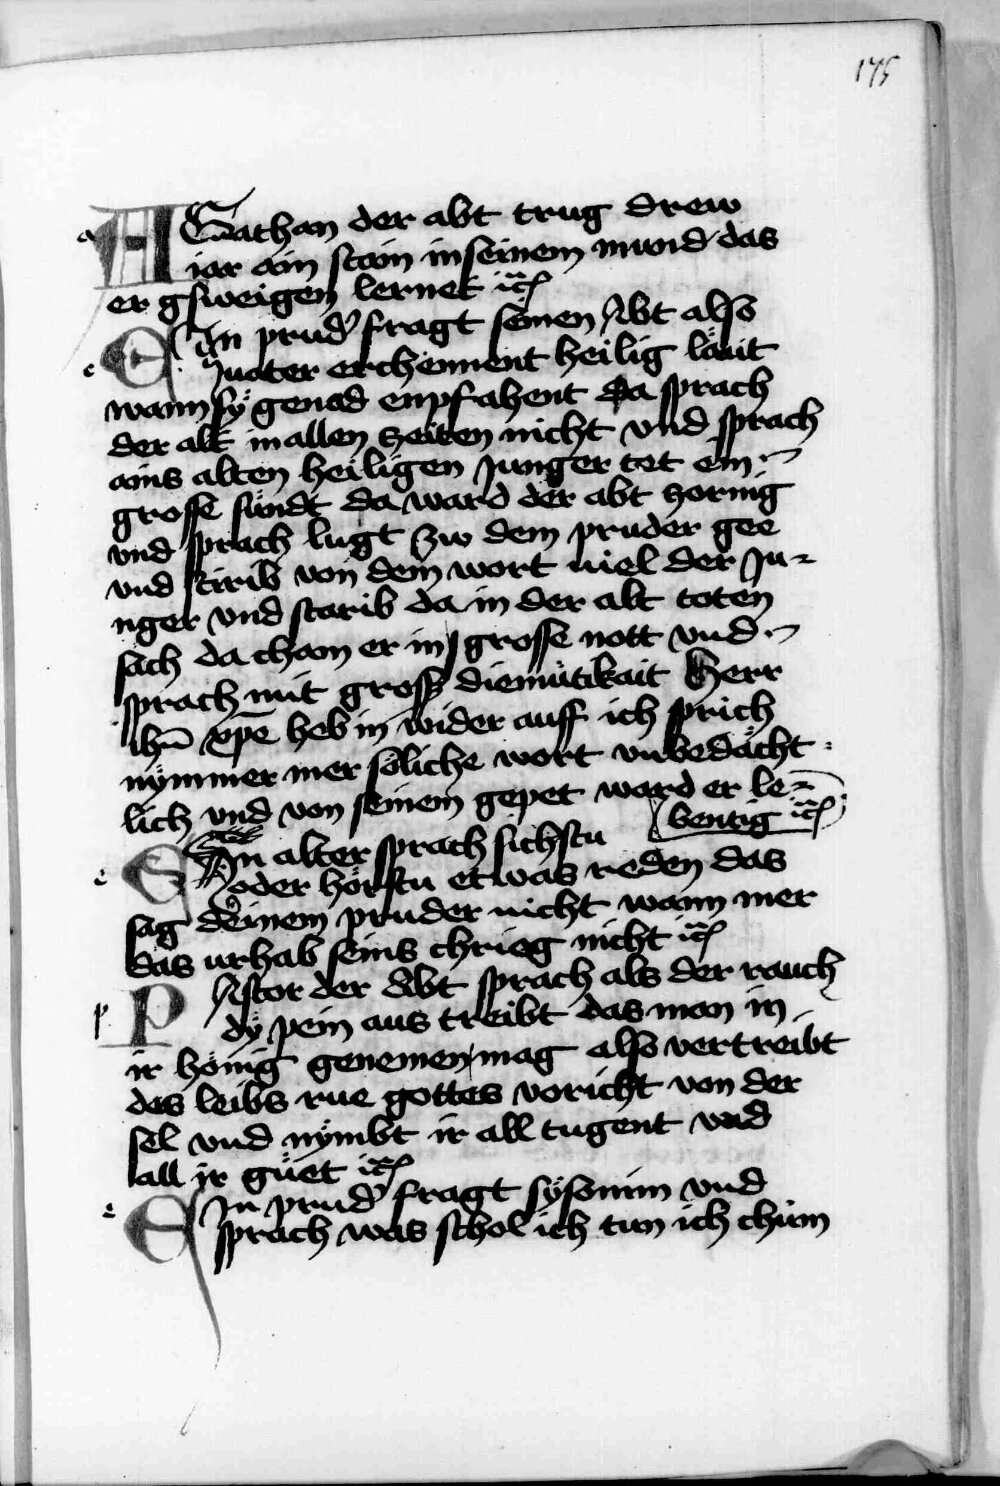 175
AGathan der abt trug drew
iar ain stain in seinem mund das
er gsweigen lernet ꝛc̄
EIn prud͛ fragt seinen Abt also
vater erchennent heilig läüt
wann sÿ genad enpfahent Da sprach
der alt in allen zeiten nicht vnd sprach
ains alten heiligen Junger tet ein
grosse sündt da ward der abt zornig
vnd sprach lugt zw dem pruder gee
vnd stirib von dem wort viel der Ju-
nger vnd starib da in der abt toten
sach da cham er in grosse nott vnd
sprach mit gross diemütikait Herr
ihū xp̄e heb in wider auff ich sprich
nÿmmer mer söliche wort vnbedächt
lich vnd von seinem gepet ward er le-
bentig ꝛc̄
EIn alter sprach sichstu
oder hörstu etwas reden das
sag deinem pruder nicht wann mer
das urhab seins chrieg nicht ꝛc̄
PAstor der abt sprach als der rauch
dÿ pein aus treibt das man in
ir hönig genemen mag also vertreibt
des leibs rue gottes voricht von der
sel vnd nÿmbt ir all tugent vnd
all ir güet ꝛc̄
EIn prud͛ fragt sÿsoinm vnd
sprach was schol ich tun ich chüm